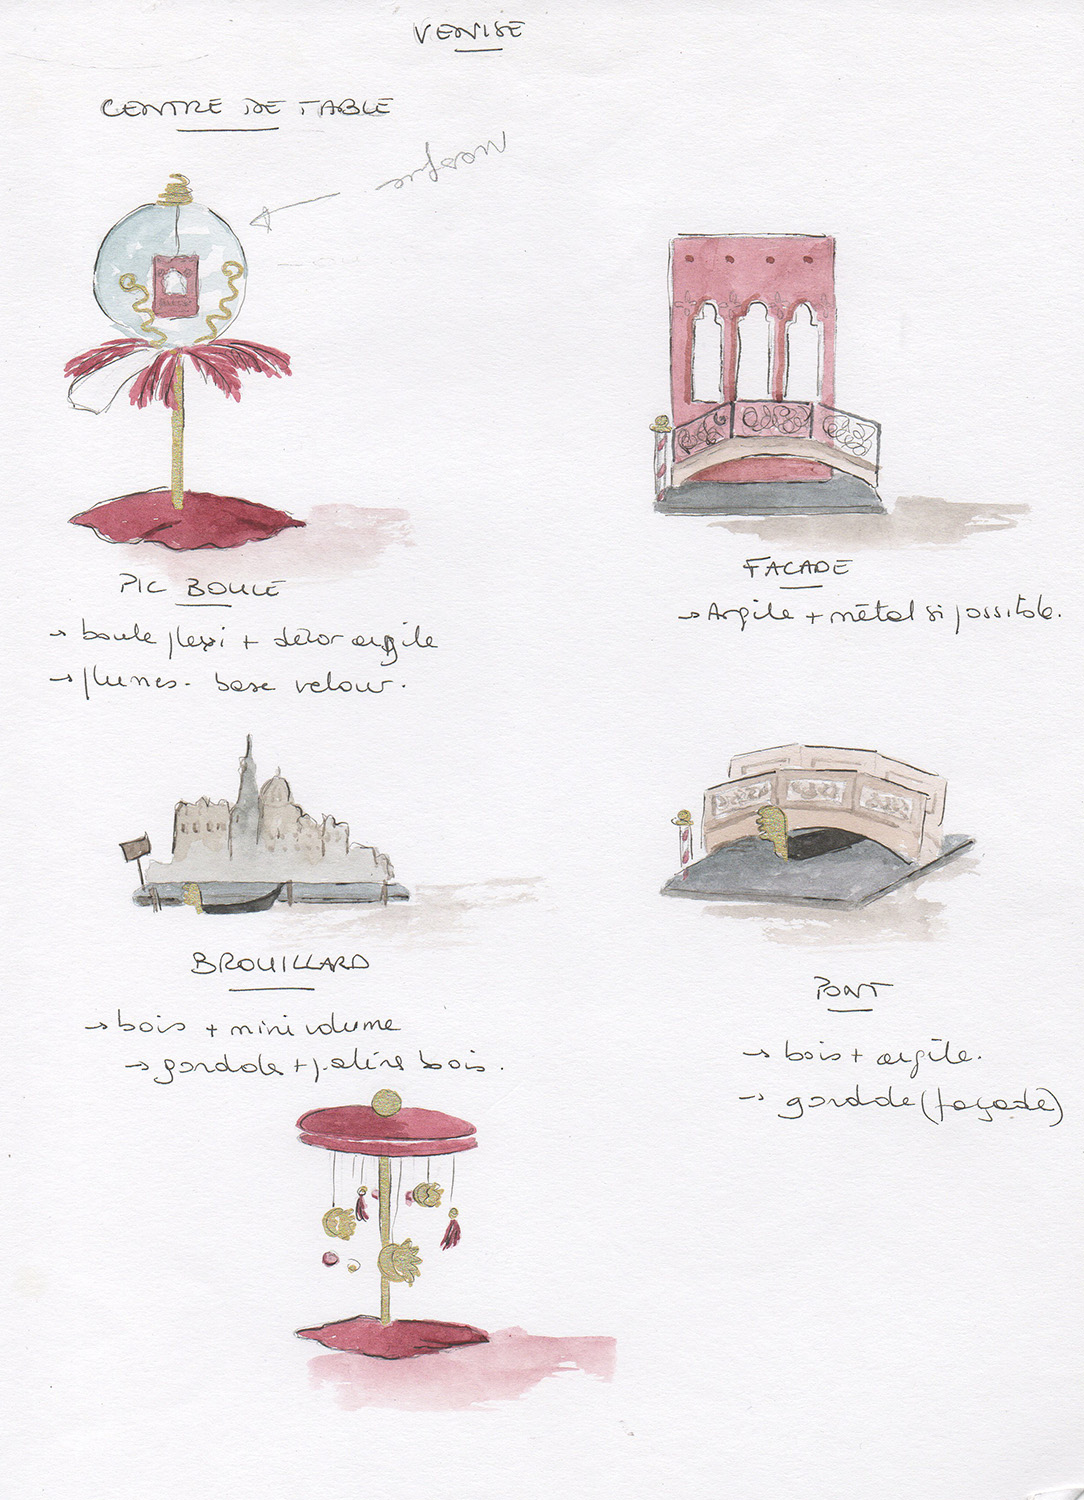 VENISE
CENTRE DE TABLE
PIC BOULE
→ boule plexi + décor argile
→ plumes - base velour.
FACADE
→ Argile + métal si possible.
BROUILLARD
→ bois + mini volume
→ gondole + patine bois.
PONT
→ bois + argile.
→ gondole (façade)